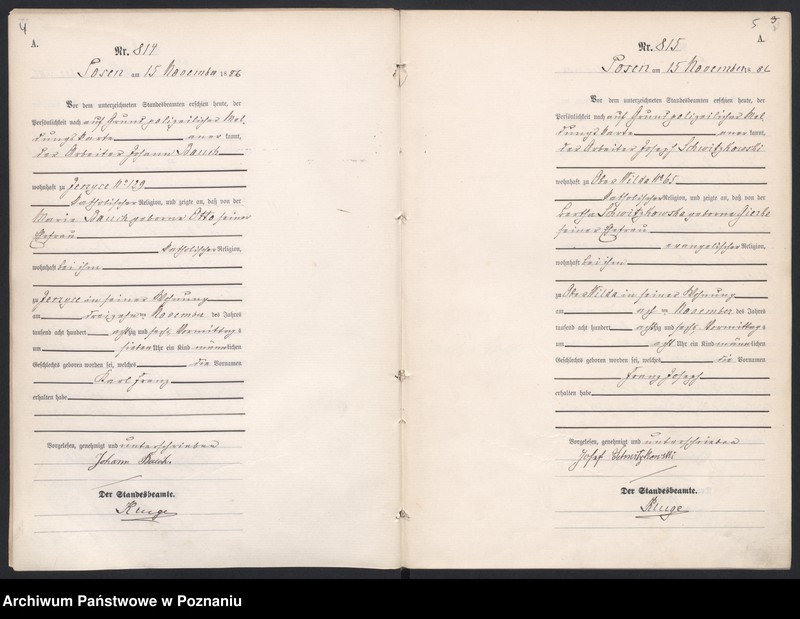 4
A.
Nr. 814.
Posen am 15 November 1886
Vor dem unterzeichneten Standesbeamten erschien heute, der
Persönlichkeit nach auf Grund polizeilicher Mel-
dungskarte anerkannt,
der Arbeiter Johann Bauch
wohnhaft zu Jerzyce No 129
katholischer Religion, und zeigte an, daß von der
Marie Bauch geborene Otto seiner
Ehefrau
katholischer Religion,
wohnhaft bei ihm
zu Jerzyce in seiner Wohnung
am dreizehnten November des Jahres
tausend acht hundert achtzig und sechs Vormittags
um sieben Uhr ein Kind männlichen
Geschlechts geboren worden sei, welches die Vornamen
Karl Franz
erhalten habe
Vorgelesen, genehmigt und unterschrieben
Johann Bauch.
Der Standesbeamte.
Kluge
5 3
A.
Nr. 815.
Posen am 15 November 1886
Vor dem unterzeichneten Standesbeamten erschien heute, der
Persönlichkeit nach auf Grund polizeilicher Mel-
dungskarte anerkannt,
der Arbeiter Joseph Schwitzkowski
wohnhaft zu Ober Wilda No 65
katholischer Religion, und zeigte an, daß von der
Bertha Schwitzkowska geborene Gierke
seiner Ehefrau
evangelischer Religion,
wohnhaft bei ihm
zu Ober Wilda in seiner Wohnung
am acht ten November des Jahres
tausend acht hundert achtzig und sechs Vormittags
um acht Uhr ein Kind männlichen
Geschlechts geboren worden sei, welches die Vornamen
Franz Joseph
erhalten habe
Vorgelesen, genehmigt und unterschrieben
Josef Schwitzkowski
Der Standesbeamte.
Kluge
Archiwum Państwowe w Poznaniu